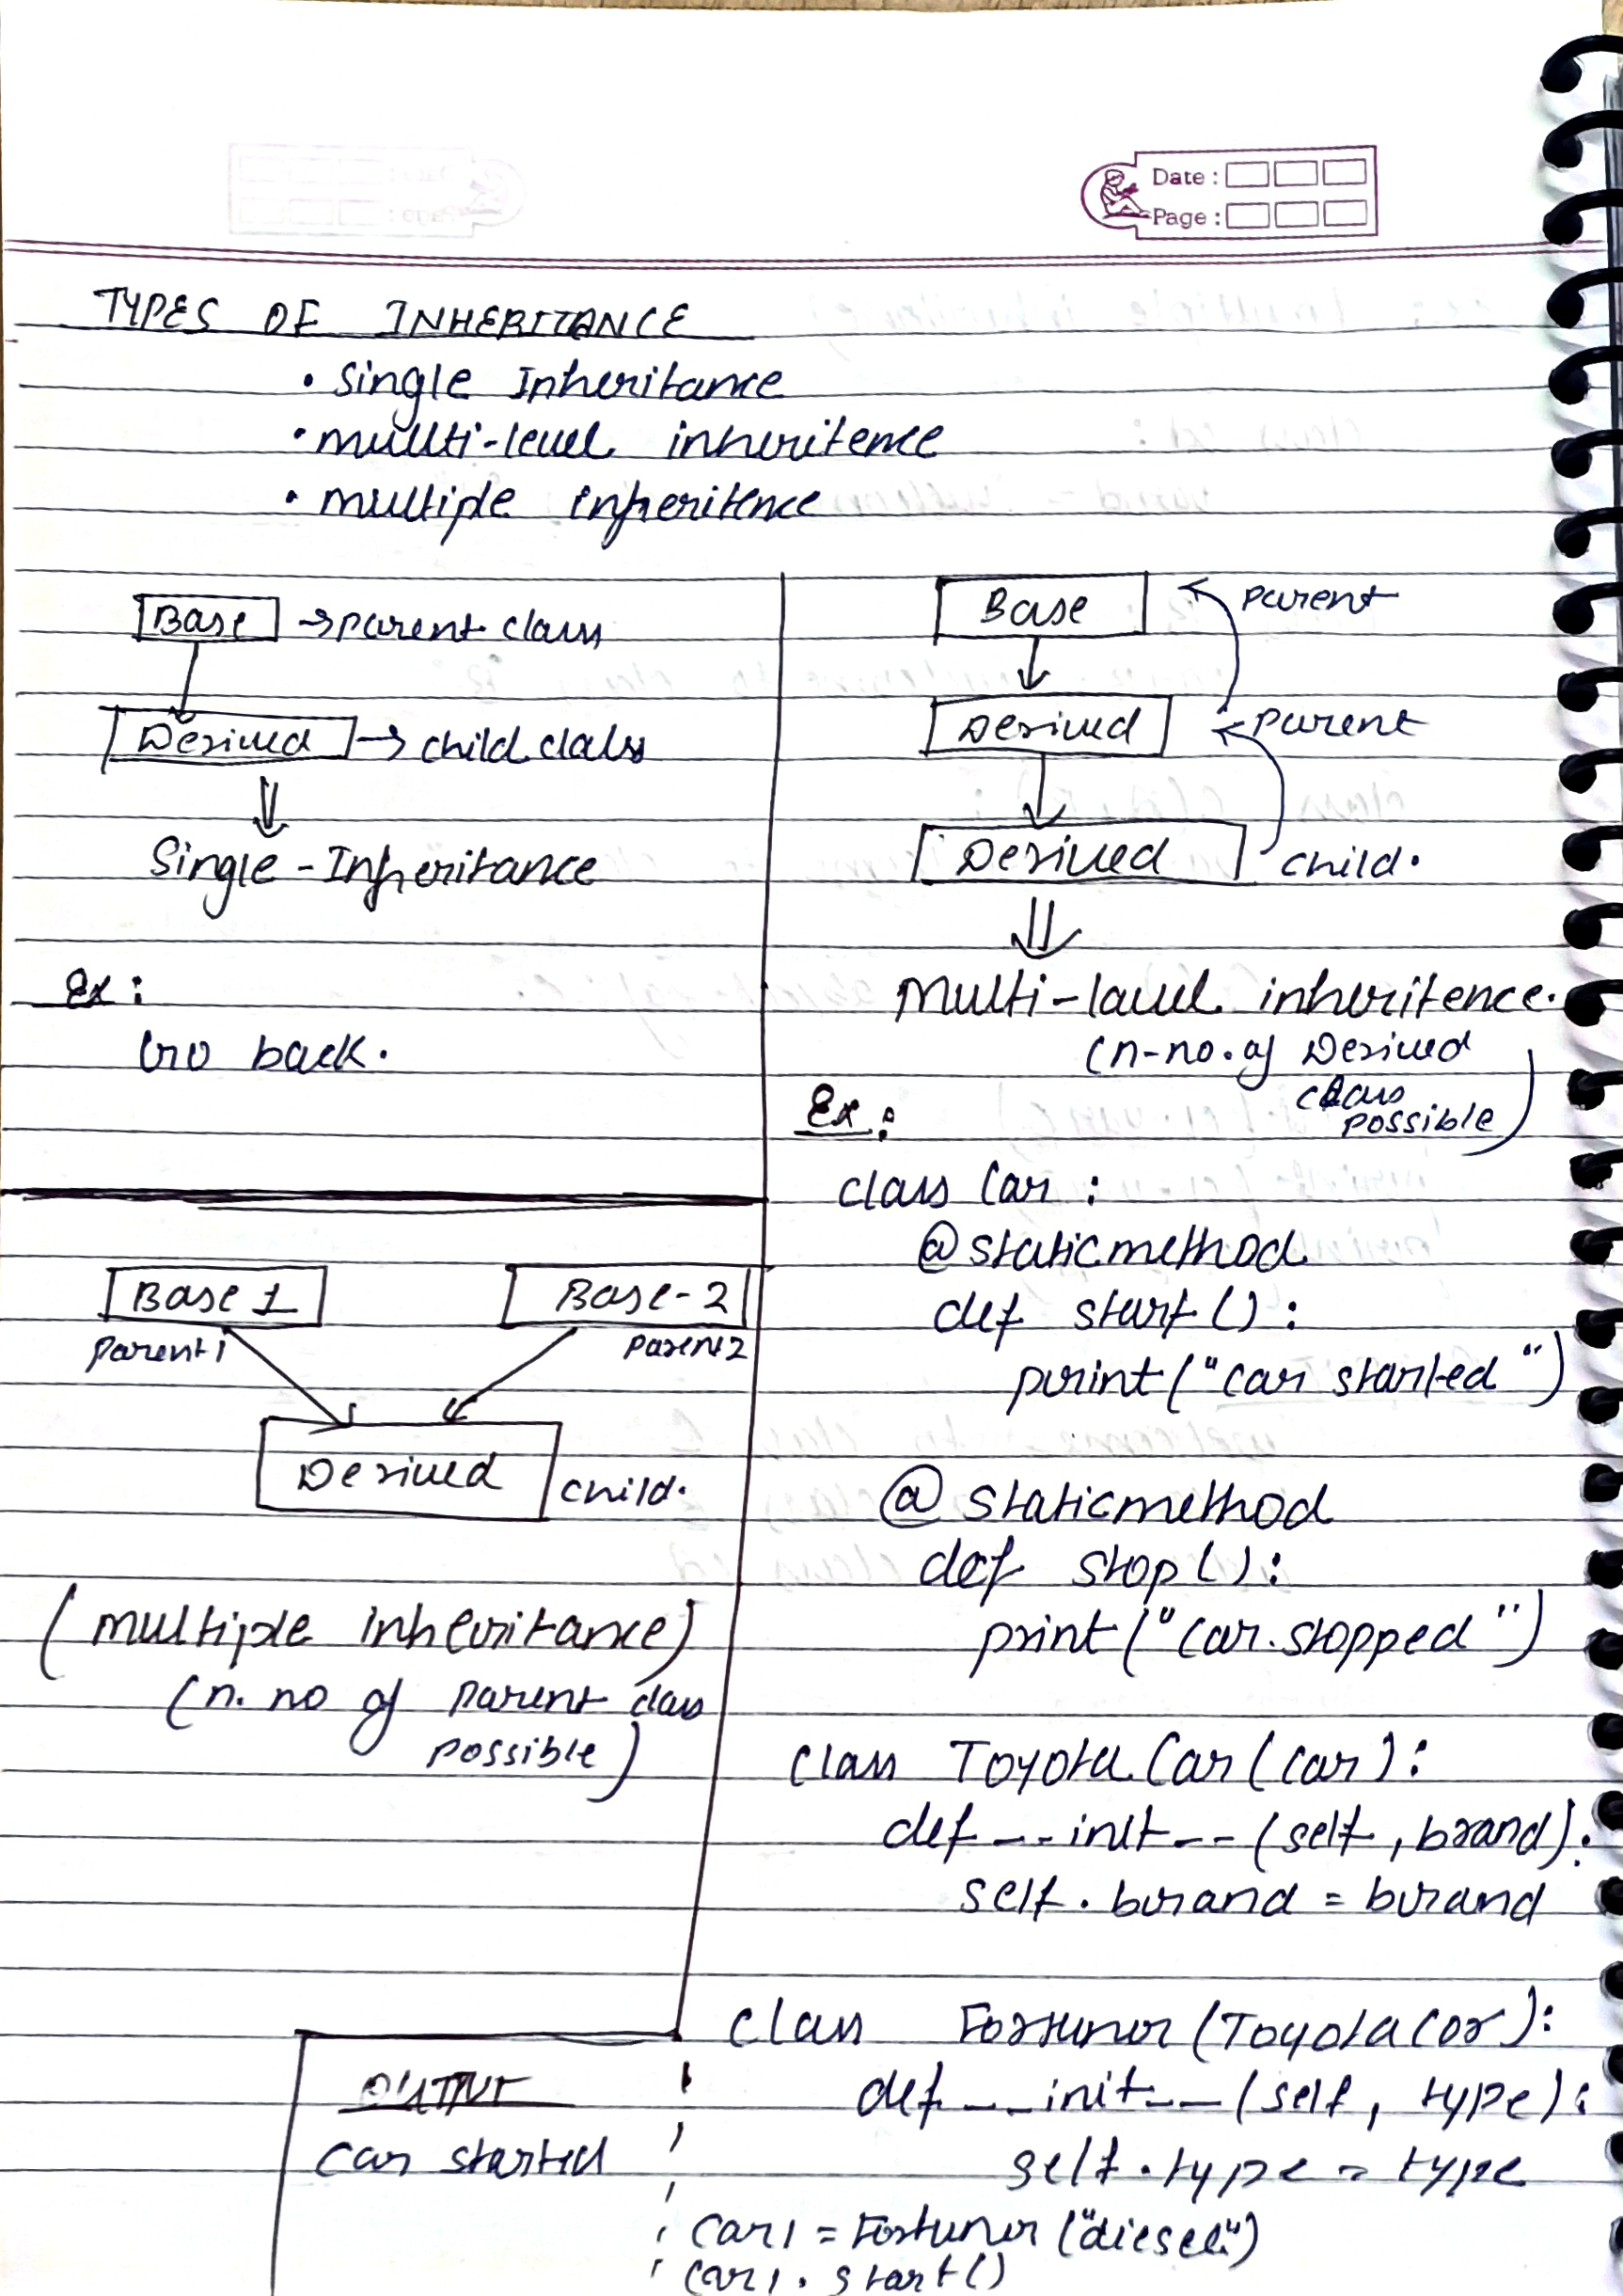 Date :
Page :
TYPES OF INHERITANCE
• Single Inheritance
• multi-level inheritence
• multiple inheritence
Base → parent class
Derived → child class
Single-Inheritance
Ex :
Go back.
Base 1
Base-2
parent1
parent2
Derived
child.
(multiple inheritance)
(n. no of parent class
possible)
Base
parent
Derived
parent
Derived
child.
Multi-level inheritence.
(n-no. of Derived
class
possible)
Ex :
class Car :
@staticmethod
def start () :
print ("car started")
@staticmethod
def stop () :
print ("car.stopped")
class ToyotaCar (Car) :
def __init__ (self, brand) :
self.brand = brand
class Fortuner (ToyotaCar) :
def __init__ (self, type) :
self.type = type
car1 = Fortuner ("diesel")
car1.start()
OUTPUT
Car started